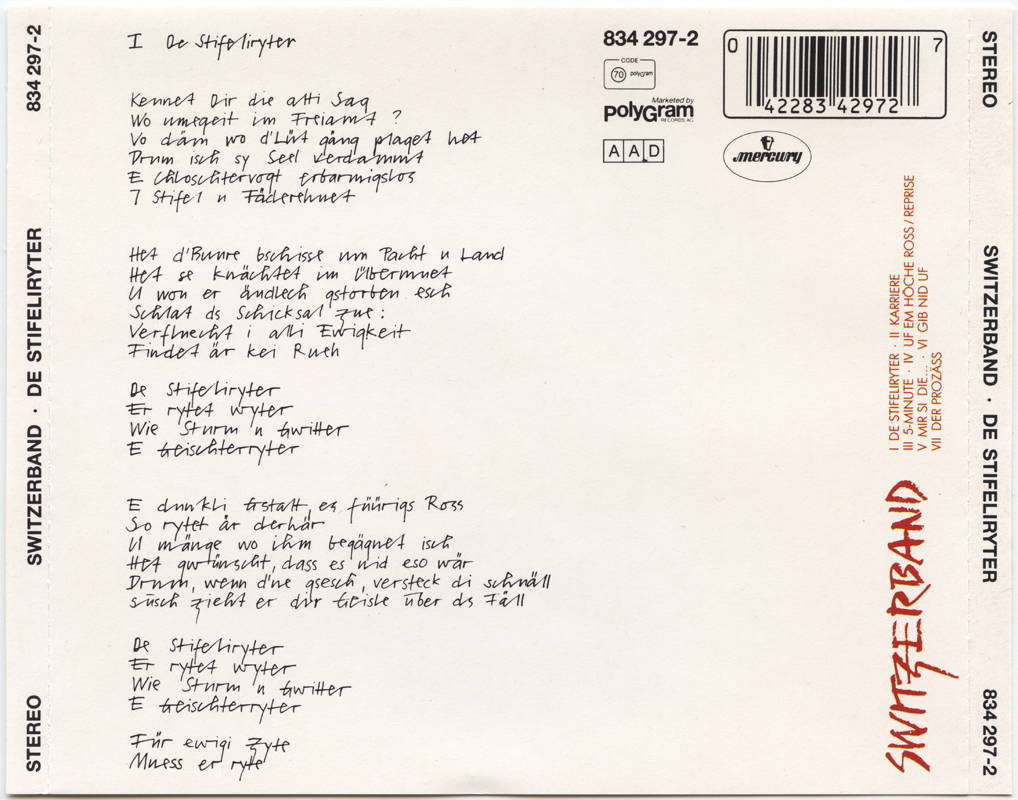 STEREO
SWITZERBAND · DE STIFELIRYTER
834 297-2
I De Stifeliryter
Kennet Dir die alti Sag
Wo umegeit im Freiamt ?
Vo däm wo d'Lüt gäng plaget het
Drum isch sy Seel verdammt
E Chloschtervogt erbarmigslos
I Stifel u Fäderehuet
Het d'Buure bschisse um Pacht u Land
Het se knächtet im Übermuet
U won er ändlech gstorben esch
Schlat ds Schicksal zue :
Verfluecht i alli Ewigkeit
Findet är kei Rueh
De Stifeliryter
Er rytet wyter
Wie Sturm u Gwitter
E Geischterryter
E dunkli Gstalt, es füürigs Ross
So rytet är derhär
U mänge wo ihm begägnet isch
Het gwünscht, dass es nid eso wär
Drum, wenn d'ne gsesch, versteck di schnäll
süsch zieht er dir Geisle über ds Fäll
De Stifeliryter
Er rytet wyter
Wie Sturm u Gwitter
E Geischterryter
Für ewigi Zyte
Muess er ryte
834 297-2
CODE
70 polygram
Marketed by
polyGram
RECORDS AG
A A D
0 42283 42972 7
mercury
I DE STIFELIRYTER · II KARRIERE
III 5-MINUTE · IV UF EM HÖCHE ROSS / REPRISE
V MIR SI DIE... · VI GIB NID UF
VII DER PROZÄSS
SWITZERBAND
STEREO
SWITZERBAND · DE STIFELIRYTER
834 297-2